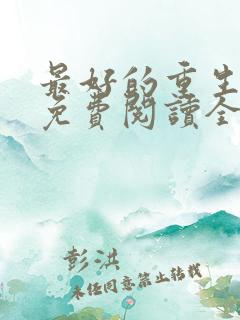 最好的重生
免費閱讀全
彭洪
未经同意禁止转载